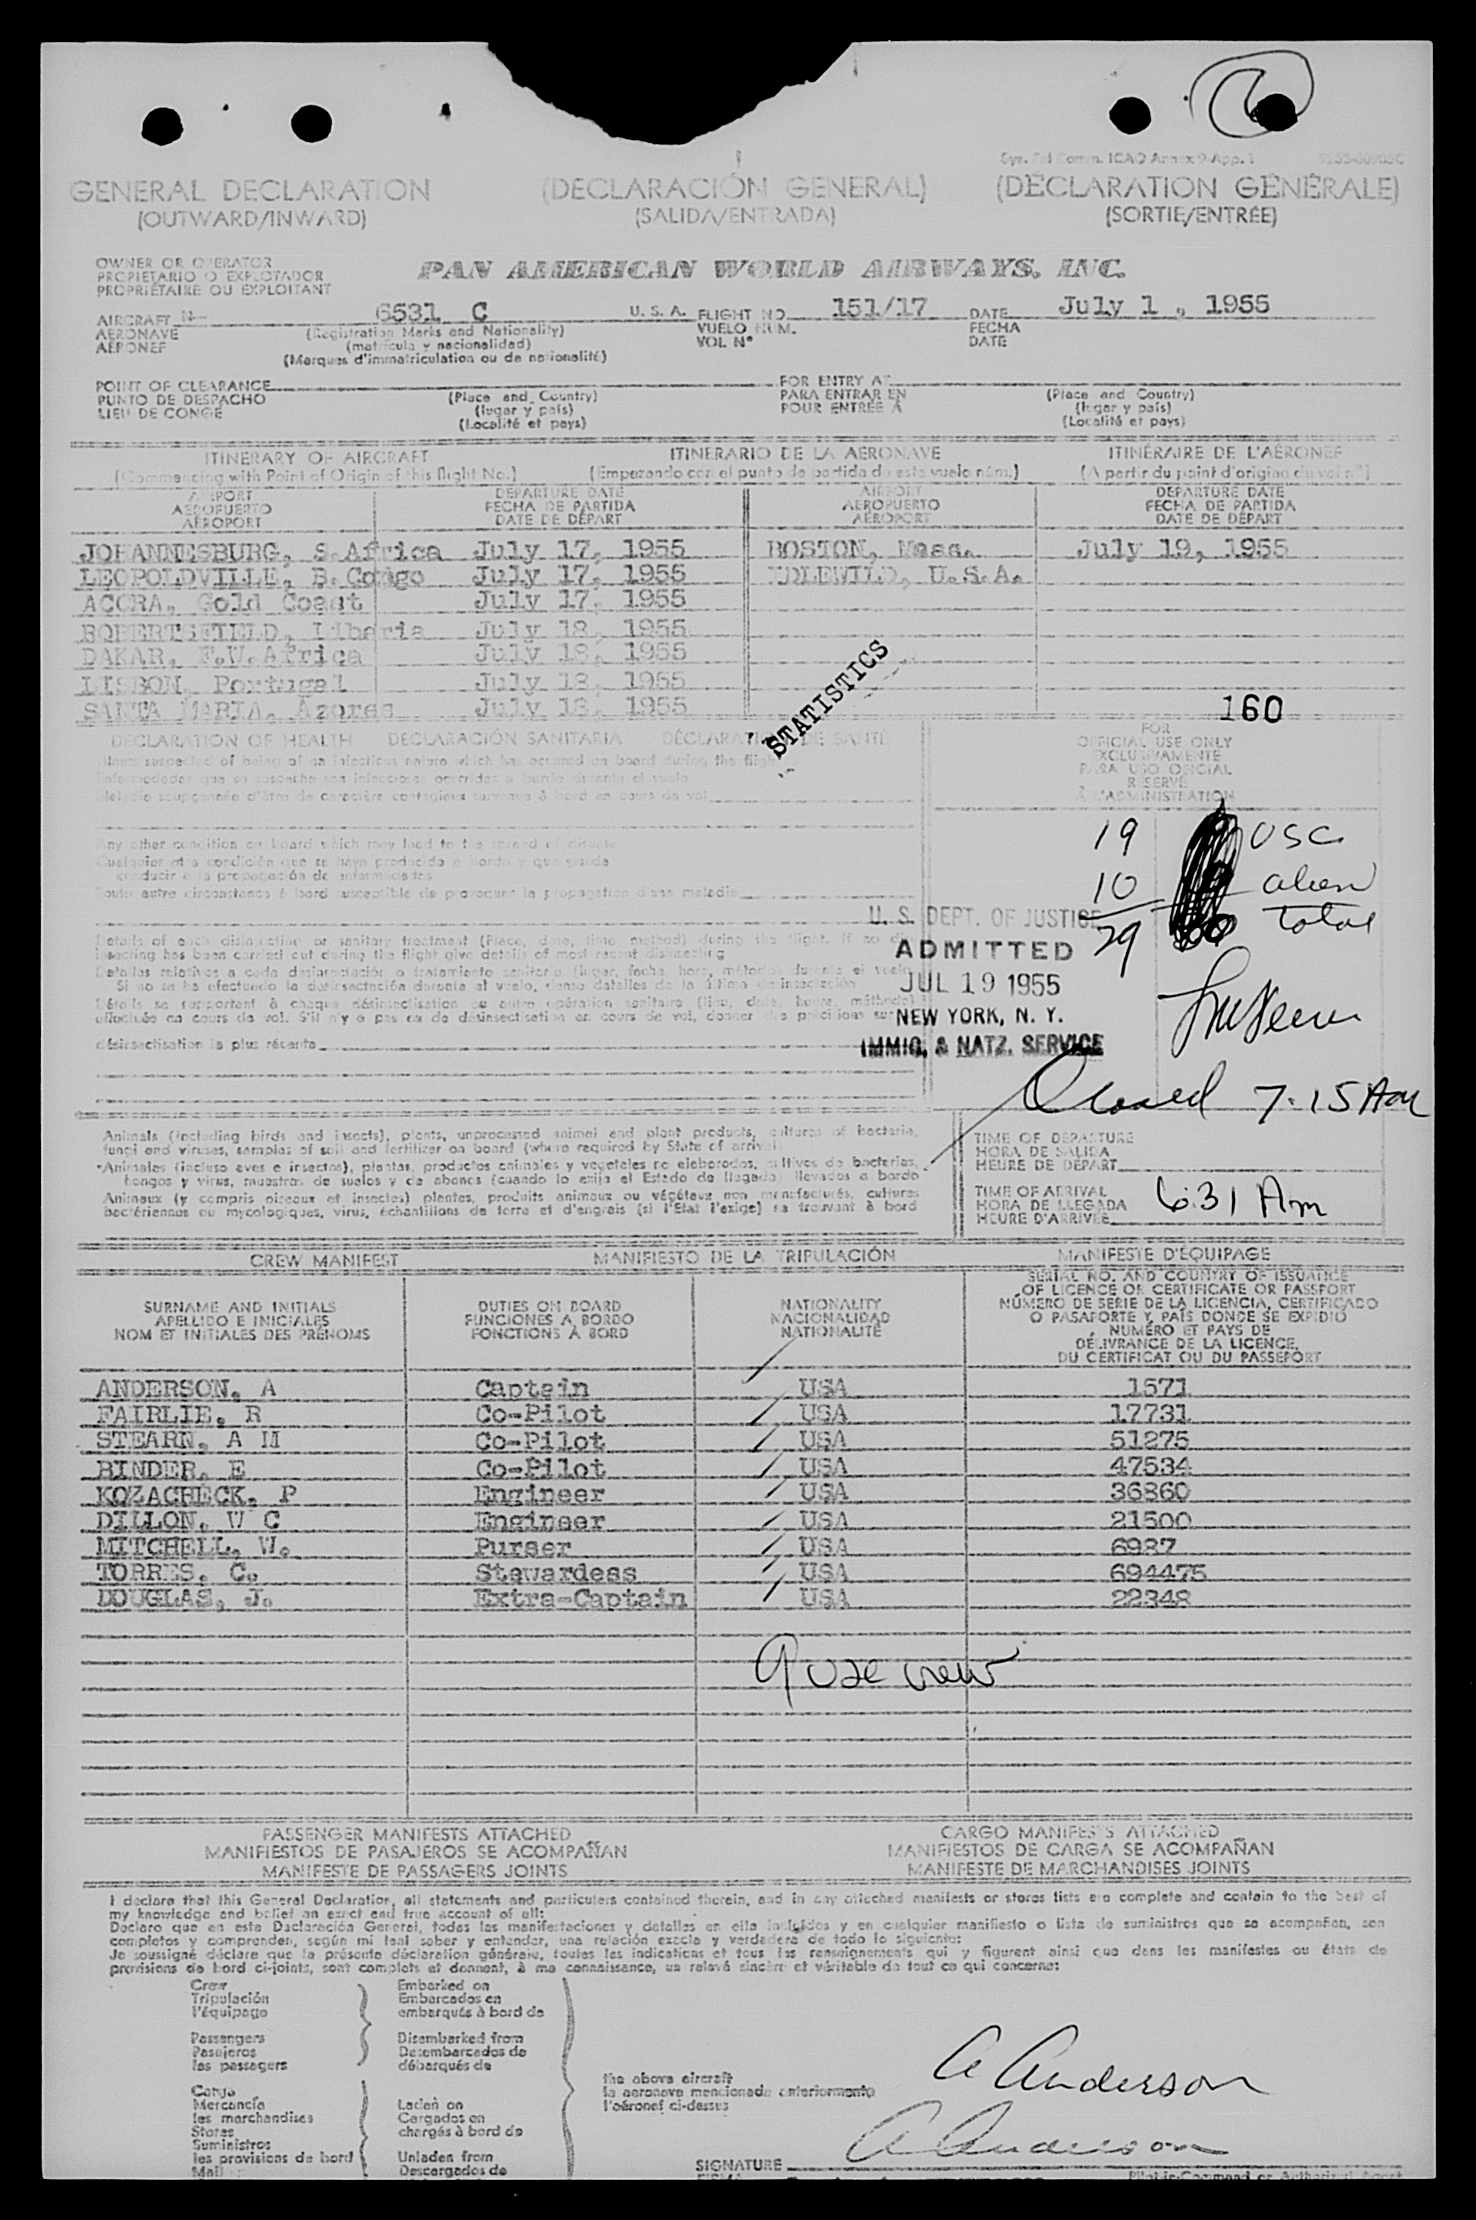 Sys. Tel Comm. ICAO Annex 9-App. 1
GENERAL DECLARATION
(OUTWARD/INWARD)
(DECLARACIÓN GENERAL)
(SALIDA/ENTRADA)
(DÉCLARATION GÉNÉRALE)
(SORTIE/ENTRÉE)
OWNER OR OPERATOR
PROPIETARIO O EXPLOTADOR
PROPRIÉTAIRE OU EXPLOITANT
PAN AMERICAN WORLD AIRWAYS, INC.
AIRCRAFT N- 6531 C U. S. A. FLIGHT NO. 151/17 DATE July 1 , 1955
AERONAVE (Registration Marks and Nationality) VUELO NUM. FECHA
AÉRONEF (matrícula y nacionalidad) VOL N° DATE
(Marques d'immatriculation ou de nationalité)
POINT OF CLEARANCE FOR ENTRY AT
PUNTO DE DESPACHO (Place and Country) PARA ENTRAR EN (Place and Country)
LIEU DE CONGÉ (lugar y país) POUR ENTRÉE À (lugar y país)
(Localité et pays) (Localité et pays)
ITINERARY OF AIRCRAFT ITINERARIO DE LA AERONAVE ITINÉRAIRE DE L'AÉRONEF
(Commencing with Point of Origin of this flight No.) (Empezando con el punto de partida de este vuelo núm.) (A partir du point d'origine du vol n°)
AIRPORT DEPARTURE DATE AIRPORT DEPARTURE DATE
AEROPUERTO FECHA DE PARTIDA AEROPUERTO FECHA DE PARTIDA
AÉROPORT DATE DE DÉPART AÉROPORT DATE DE DÉPART
JOHANNESBURG, S.Africa July 17, 1955 BOSTON, Mass. July 19, 1955
LEOPOLDVILLE, B.Congo July 17, 1955 IDLEWILD, U.S.A.
ACCRA, Gold Coast July 17, 1955
ROBERTSFIELD, Liberia July 18, 1955
DAKAR, F.W.Africa July 18, 1955
LISBON, Portugal July 18, 1955
SANTA MARIA, Azores July 18, 1955
STATISTICS
160
DECLARATION OF HEALTH DECLARACIÓN SANITARIA DÉCLARATION DE SANTÉ
FOR
OFFICIAL USE ONLY
EXCLUSIVAMENTE
PARA USO OFICIAL
RÉSERVÉ
À L'ADMINISTRATION
Illness suspected of being of an infectious nature which has occurred on board during the flight
Enfermedades que se sospecha son infecciosas ocurridas a bordo durante el vuelo
Maladie soupçonnée d'être de caractère contagieux survenue à bord en cours de vol
Any other condition on board which may lead to the spread of disease
Cualquier otra condición que se haya producido a bordo y que pueda
conducir a la propagación de enfermedades
Toute autre circonstance à bord susceptible de provoquer la propagation d'une maladie
19 USC
10 alien
29 total
Details of each disinsection or sanitary treatment (Place, date, time method) during the flight. If no
insecting has been carried out during the flight give details of most recent disinsecting
Detalles relativos a cada desinsectación o tratamiento sanitario (lugar, fecha, hora, método) durante el vuelo
Si no se ha efectuado la desinsectación durante el vuelo, dense detalles de la última desinsectación
Détails se rapportant à chaque désinsectisation ou autre opération sanitaire (lieu, date, heure, méthode)
effectuée en cours de vol. S'il n'y a pas eu de désinsectisation en cours de vol, donner des précisions sur
désinsectisation la plus récente
U. S. DEPT. OF JUSTICE
ADMITTED
JUL 19 1955
NEW YORK, N. Y.
IMMIG. & NATZ. SERVICE
Closed 7:15 Am
Animals (including birds and insects), plants, unprocessed animal and plant products, cultures of bacteria,
fungi and viruses, samples of soil and fertilizer on board (where required by State of arrival)
Animales (incluso aves e insectos), plantas, productos animales y vegetales no elaborados, cultivos de bacterias,
hongos y virus, muestras de suelos y de abonos (cuando lo exija el Estado de llegada) llevados a bordo
Animaux (y compris oiseaux et insectes) plantes, produits animaux ou végétaux non manufacturés, cultures
bactériennes ou mycologiques, virus, échantillons de terre et d'engrais (si l'État l'exige) se trouvant à bord
TIME OF DEPARTURE
HORA DE SALIDA
HEURE DE DÉPART
TIME OF ARRIVAL
HORA DE LLEGADA 6:31 Am
HEURE D'ARRIVÉE
CREW MANIFEST MANIFIESTO DE LA TRIPULACIÓN MANIFESTE D'ÉQUIPAGE
SURNAME AND INITIALS
APELLIDO E INICIALES
NOM ET INITIALES DES PRÉNOMS
DUTIES ON BOARD
FUNCIONES A BORDO
FONCTIONS À BORD
NATIONALITY
NACIONALIDAD
NATIONALITÉ
SERIAL NO. AND COUNTRY OF ISSUANCE
OF LICENCE OR CERTIFICATE OR PASSPORT
NÚMERO DE SERIE DE LA LICENCIA, CERTIFICADO
O PASAPORTE Y PAÍS DONDE SE EXPIDIÓ
NUMÉRO ET PAYS DE
DÉLIVRANCE DE LA LICENCE,
DU CERTIFICAT OU DU PASSEPORT
ANDERSON, A Captain USA 1571
FAIRLIE, R Co-Pilot USA 17731
STEARN, A M Co-Pilot USA 51275
BINDER, E Co-Pilot USA 47534
KOZACHECK, P Engineer USA 36860
DILLON, W C Engineer USA 21500
MITCHELL, W. Purser USA 6987
TORRES, C. Stewardess USA 694475
DOUGLAS, J. Extra-Captain USA 22348
9 usc crew
PASSENGER MANIFESTS ATTACHED CARGO MANIFESTS ATTACHED
MANIFIESTOS DE PASAJEROS SE ACOMPAÑAN MANIFIESTOS DE CARGA SE ACOMPAÑAN
MANIFESTE DE PASSAGERS JOINTS MANIFESTE DE MARCHANDISES JOINTS
I declare that this General Declaration, all statements and particulars contained therein, and in any attached manifests or stores lists are complete and contain to the best of
my knowledge and belief an exact and true account of all:
Declaro que en esta Declaración General, todas las manifestaciones y detalles en ella incluidos y en cualquier manifiesto o lista de suministros que se acompañan, son
completos y comprenden, según mi leal saber y entender, una relación exacta y verdadera de todo lo siguiente:
Je soussigné déclare que la présente déclaration générale, toutes les indications et tous les renseignements qui y figurent ainsi que dans les manifestes ou états de
provisions de bord ci-joints, sont complets et donnent, à ma connaissance, un relevé sincère et véritable de tout ce qui concerne:
Crew Embarked on
Tripulación Embarcados en
l'équipage embarqués à bord de
Passengers Disembarked from
Pasajeros Desembarcados de
les passagers débarqués de
the above aircraft
la aeronave mencionada anteriormente
l'aéronef ci-dessus
Cargo
Mercancía Laden on
les marchandises Cargados en
Stores chargés à bord de
Suministros
les provisions de bord Unladen from
Mail Descargados de
A Anderson
A Anderson
SIGNATURE
FIRMA
Pilot-in-Command or Authorized Agent